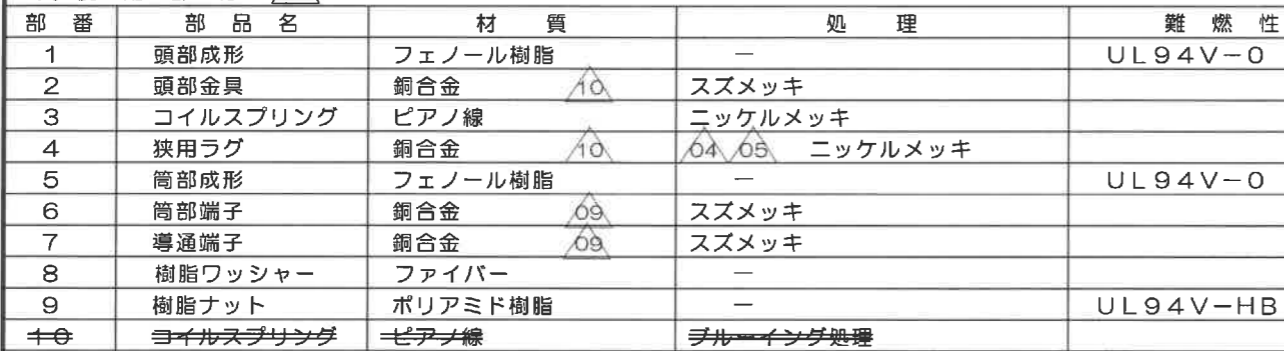 部番 部品名 材質 処理 難燃性
1 頭部成形 フェノール樹脂 — UL94V-0
2 頭部金具 銅合金 10 スズメッキ
3 コイルスプリング ピアノ線 ニッケルメッキ
4 狭用ラグ 銅合金 10 04 05 ニッケルメッキ
5 筒部成形 フェノール樹脂 — UL94V-0
6 筒部端子 銅合金 09 スズメッキ
7 導通端子 銅合金 09 スズメッキ
8 樹脂ワッシャー ファイバー —
9 樹脂ナット ポリアミド樹脂 — UL94V-HB
10 コイルスプリング ピアノ線 ブルーイング処理